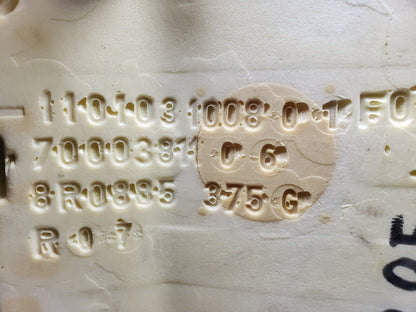 1101031008-0-1 E0
7000381 C 6
8R0885 375 G
R 0 7